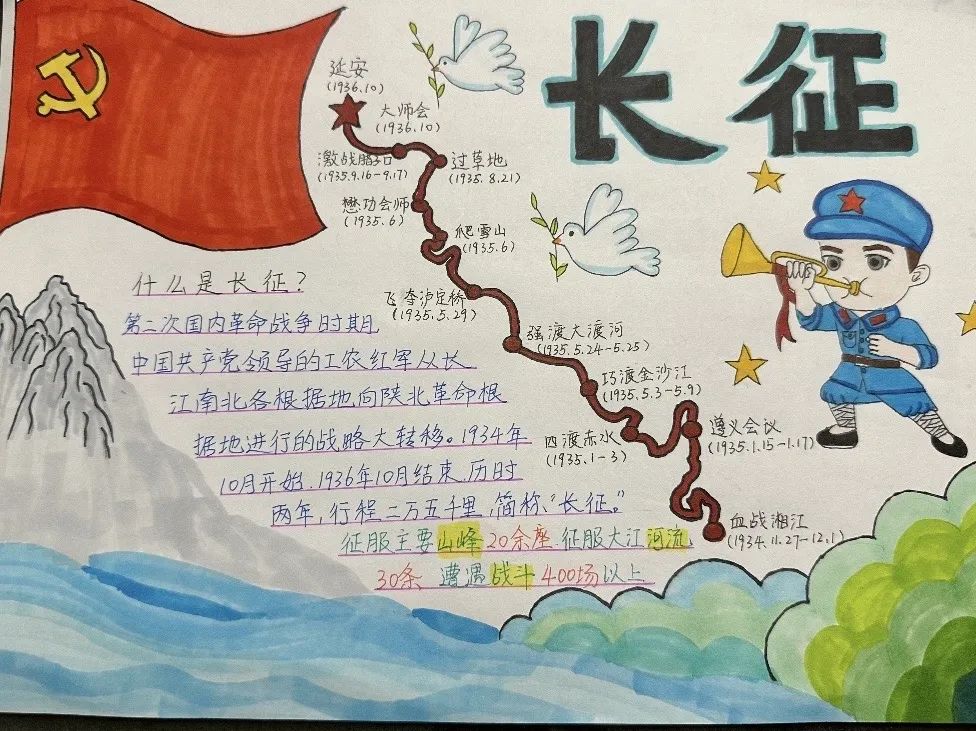 长征
延安
(1936.10)
大师会
(1936.10)
激战腊子口
(1935.9.16-9.17)
过草地
(1935.8.21)
懋功会师
(1935.6)
爬雪山
(1935.6)
飞夺泸定桥
(1935.5.29)
强渡大渡河
(1935.5.24-5.25)
巧渡金沙江
(1935.5.3-5.9)
四渡赤水
(1935.1-3)
遵义会议
(1935.1.15-1.17)
血战湘江
(1934.11.27-12.1)
什么是长征?
第二次国内革命战争时期
中国共产党领导的工农红军从长
江南北各根据地向陕北革命根
据地进行的战略大转移。1934年
10月开始,1936年10月结束,历时
两年,行程二万五千里,简称“长征”。
征服主要山峰20余座 征服大江河流
30条 遭遇战斗400场以上